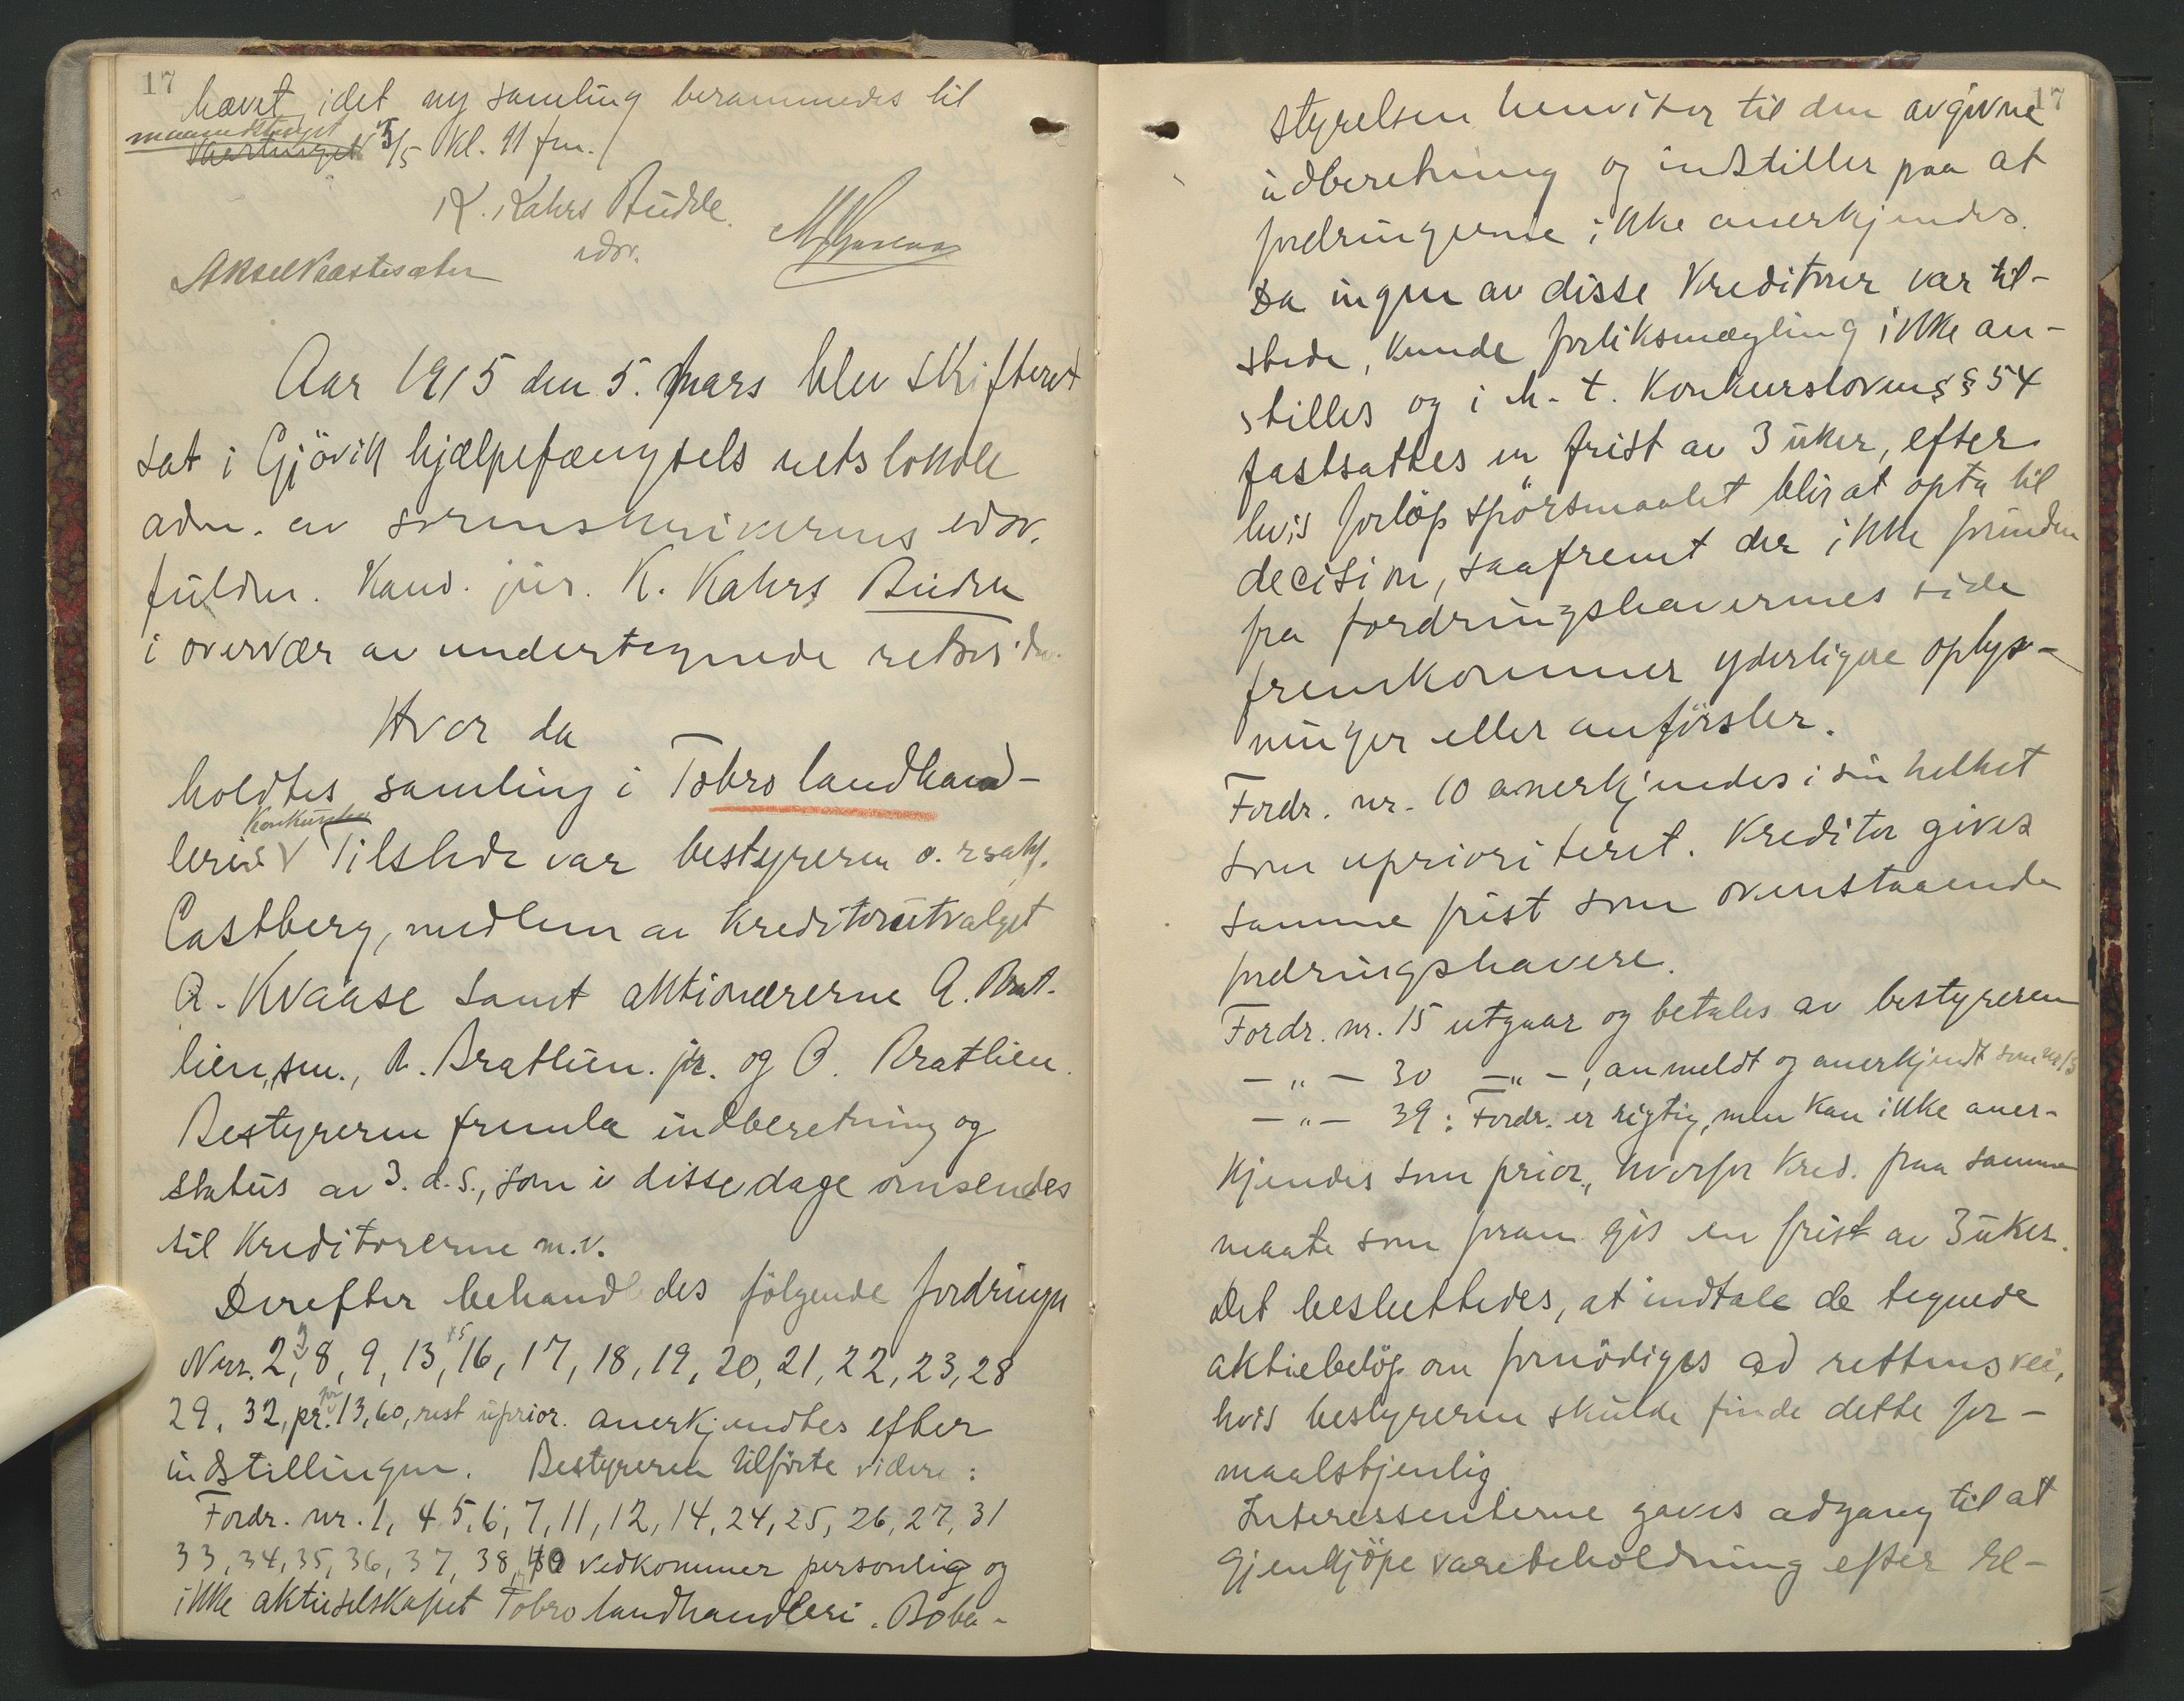 17
hævet, idet ny samling berammedes til
maanedstinget 3/5 kl. 11 fm.
K. Kahrs Budde
edsv.
Aksel Kastesæter
Aar 1915 den 5. mars blev skifteret
sat i Gjövik hjælpefængsels retslokale
adm. av sorenskriverens edsv.
fuldm. Kand. jur. K. Kahrs Budde
i overvær av undertegnede retsvidn.
Hvor da
holdtes samling i Tobro landhand-
leris konkurs Tilstede var bestyreren o.rsakf.
Castberg, medlem av kreditorutvalget
A. Kvaase samt aktionærerne A. Brat-
lien, sen., A. Bratlien. jr. og O. Bratlien.
Bestyreren fremla indberetning og
status av 3. d.s., som i disse dage omsendes
til kreditorerne m.v.
Derefter behandledes fölgende fordringer
Nrr. 2, 3, 8, 9, 13, 15, 16, 17, 18, 19, 20, 21, 22, 23, 28
29, 32, pr. for 13,60, rest uprior. anerkjendtes efter
indstillingen. Bestyreren tilförte videre:
Fordr. nr. 1, 4 5, 6, 7, 11, 12, 14, 24, 25, 26, 27, 31
33, 34, 35, 36, 37, 38, 40 vedkommer personlig og
ikke aktieselskapet Tobro landhandleri. Bobe-
17
styrelsen henviser til den avgivne
indberetning og indstiller paa at
fordringerne ikke anerkjendes.
Da ingen av disse kreditorer var til-
stede, kunde forliksmægling ikke an-
stilles og i h. t. konkurslovens § 54
fastsattes en frist av 3 uker, efter
hvis forløp spörsmaalet blir at opta til
decision, saafremt der ikke forinden
fra fordringshavernes side
fremkommer yderligere oplys-
ninger eller anförsler.
Fordr. nr. 10 anerkjendes i sin helhet
som uprioriteret. Kreditor gives
samme frist som ovenstaaende
fordringshavere.
Fordr. nr. 15 utgaar og betales av bestyreren
— " — 30 — " —, anmeldt og anerkjendt som nr 13
— " — 39: Fordr. er rigtig, men kan ikke aner-
kjendes som prior., hvorfor kred. paa samme
maate som foran gis en frist av 3 uker.
Det besluttedes, at indtale de tegnede
aktiebelöp om fornödiges ad rettens vei,
hvis bestyreren skulde finde dette for-
maalstjenlig.
Interessenterne gaves adgang til at
gjenkjöpe varebeholdning efter re-